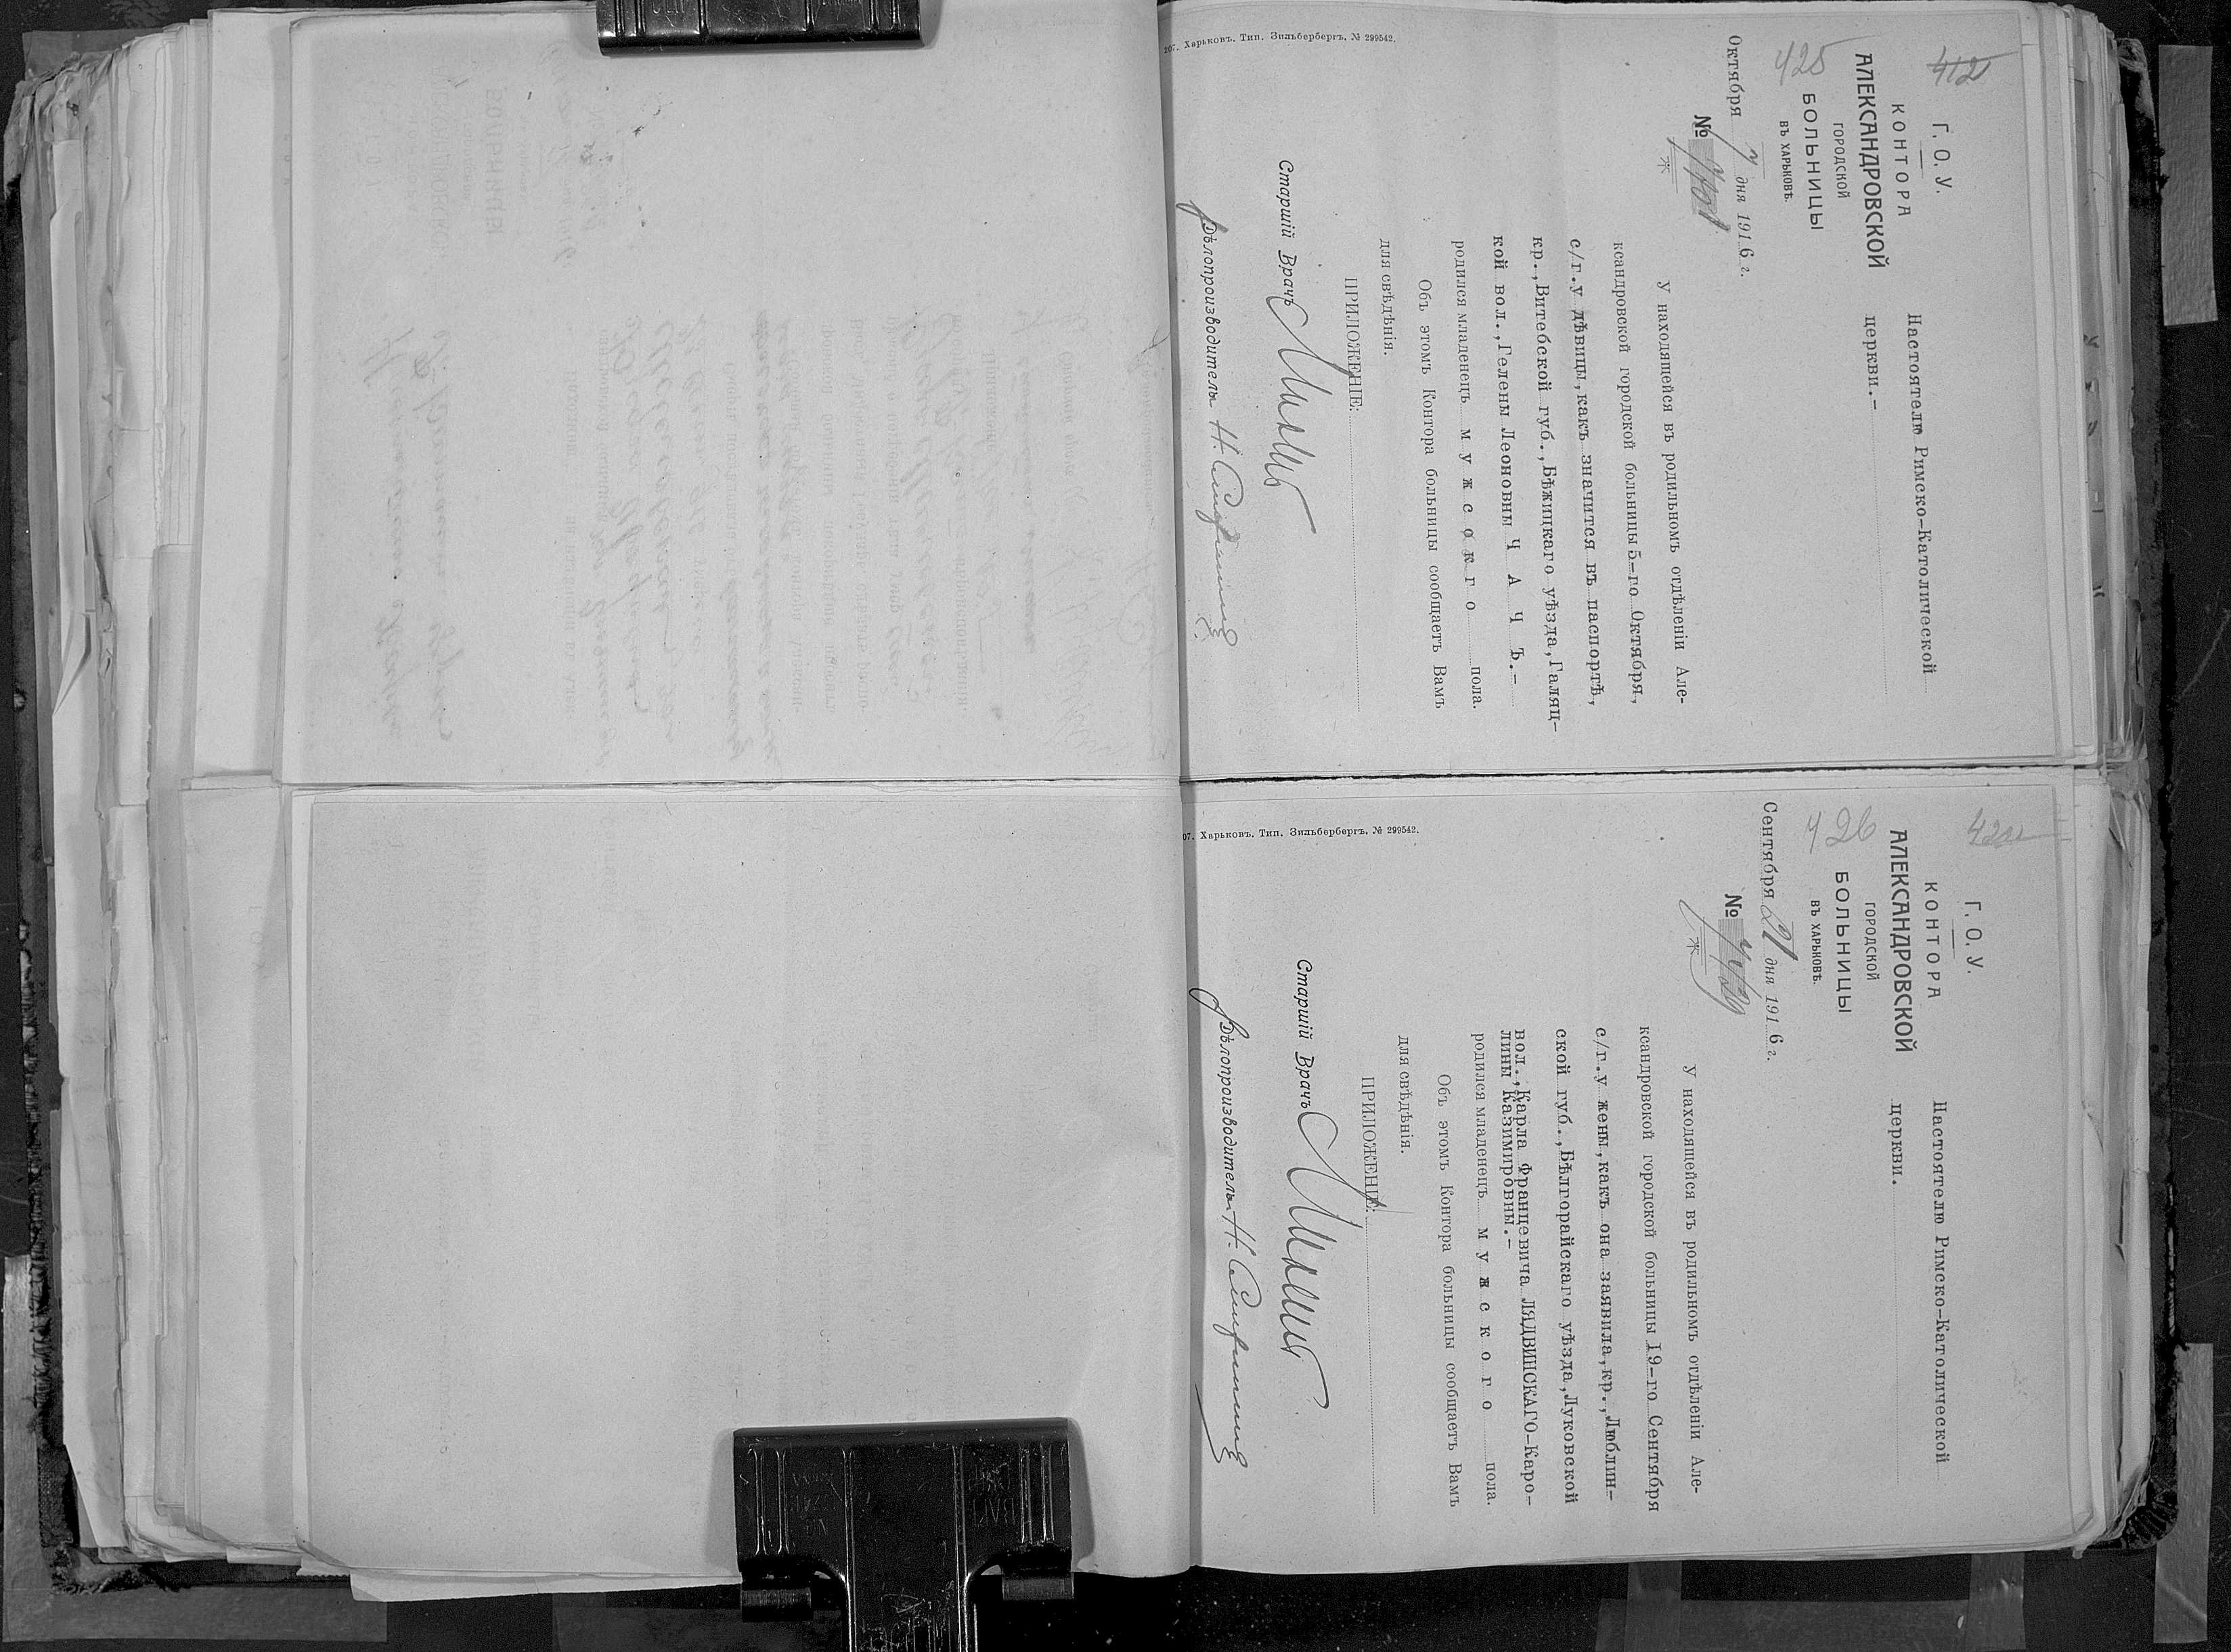 412
Г. О. У.
КОНТОРА
АЛЕКСАНДРОВСКОЙ
ГОРОДСКОЙ
БОЛЬНИЦЫ
ВЪ ХАРЬКОВѢ.
425
Октября 7 дня 1916 г.
№
Настоятелю Римско-Католической
церкви.-
У находящейся въ родильномъ отдѣленіи Але-
ксандровской городской больницы 5-го Октября,
с/г.у дѣвицы,какъ значится въ паспортѣ,
кр.,Витебской губ.,Бѣжицкаго уѣзда,Галяц-
кой вол.,Гелены Леоновны Ч А Ч Ъ.-
родился младенецъ м у ж с о к г о пола.
Объ этомъ Контора больницы сообщаетъ Вамъ
для свѣдѣнія.
ПРИЛОЖЕНІЕ:
Старшій Врачъ
Дѣлопроизводитель Н.
207. Харьковъ. Тип. Зильбербергъ. № 299542.
Г. О. У.
КОНТОРА
АЛЕКСАНДРОВСКОЙ
ГОРОДСКОЙ
БОЛЬНИЦЫ
ВЪ ХАРЬКОВѢ.
426
Сентября 21 дня 1916 г.
№
Настоятелю Римско-Католической
церкви.
У находящейся въ родильномъ отдѣленіи Але-
ксандровской городской больницы 19-го Сентября
с/г.у жены,какъ она заявила,кр.,Люблин-
ской губ.,Бѣлгорайскаго уѣзда,Луковской
вол.,Карла Францевича ЛЯДВИНСКАГО-Каро-
лины Казимировны.-
родился младенецъ м у ж с к о г о пола.
Объ этомъ Контора больницы сообщаетъ Вамъ
для свѣдѣнія.
ПРИЛОЖЕНІЕ:
Старшій Врачъ
Дѣлопроизводитель Н.
07. Харьковъ. Тип. Зильбербергъ. № 299542.